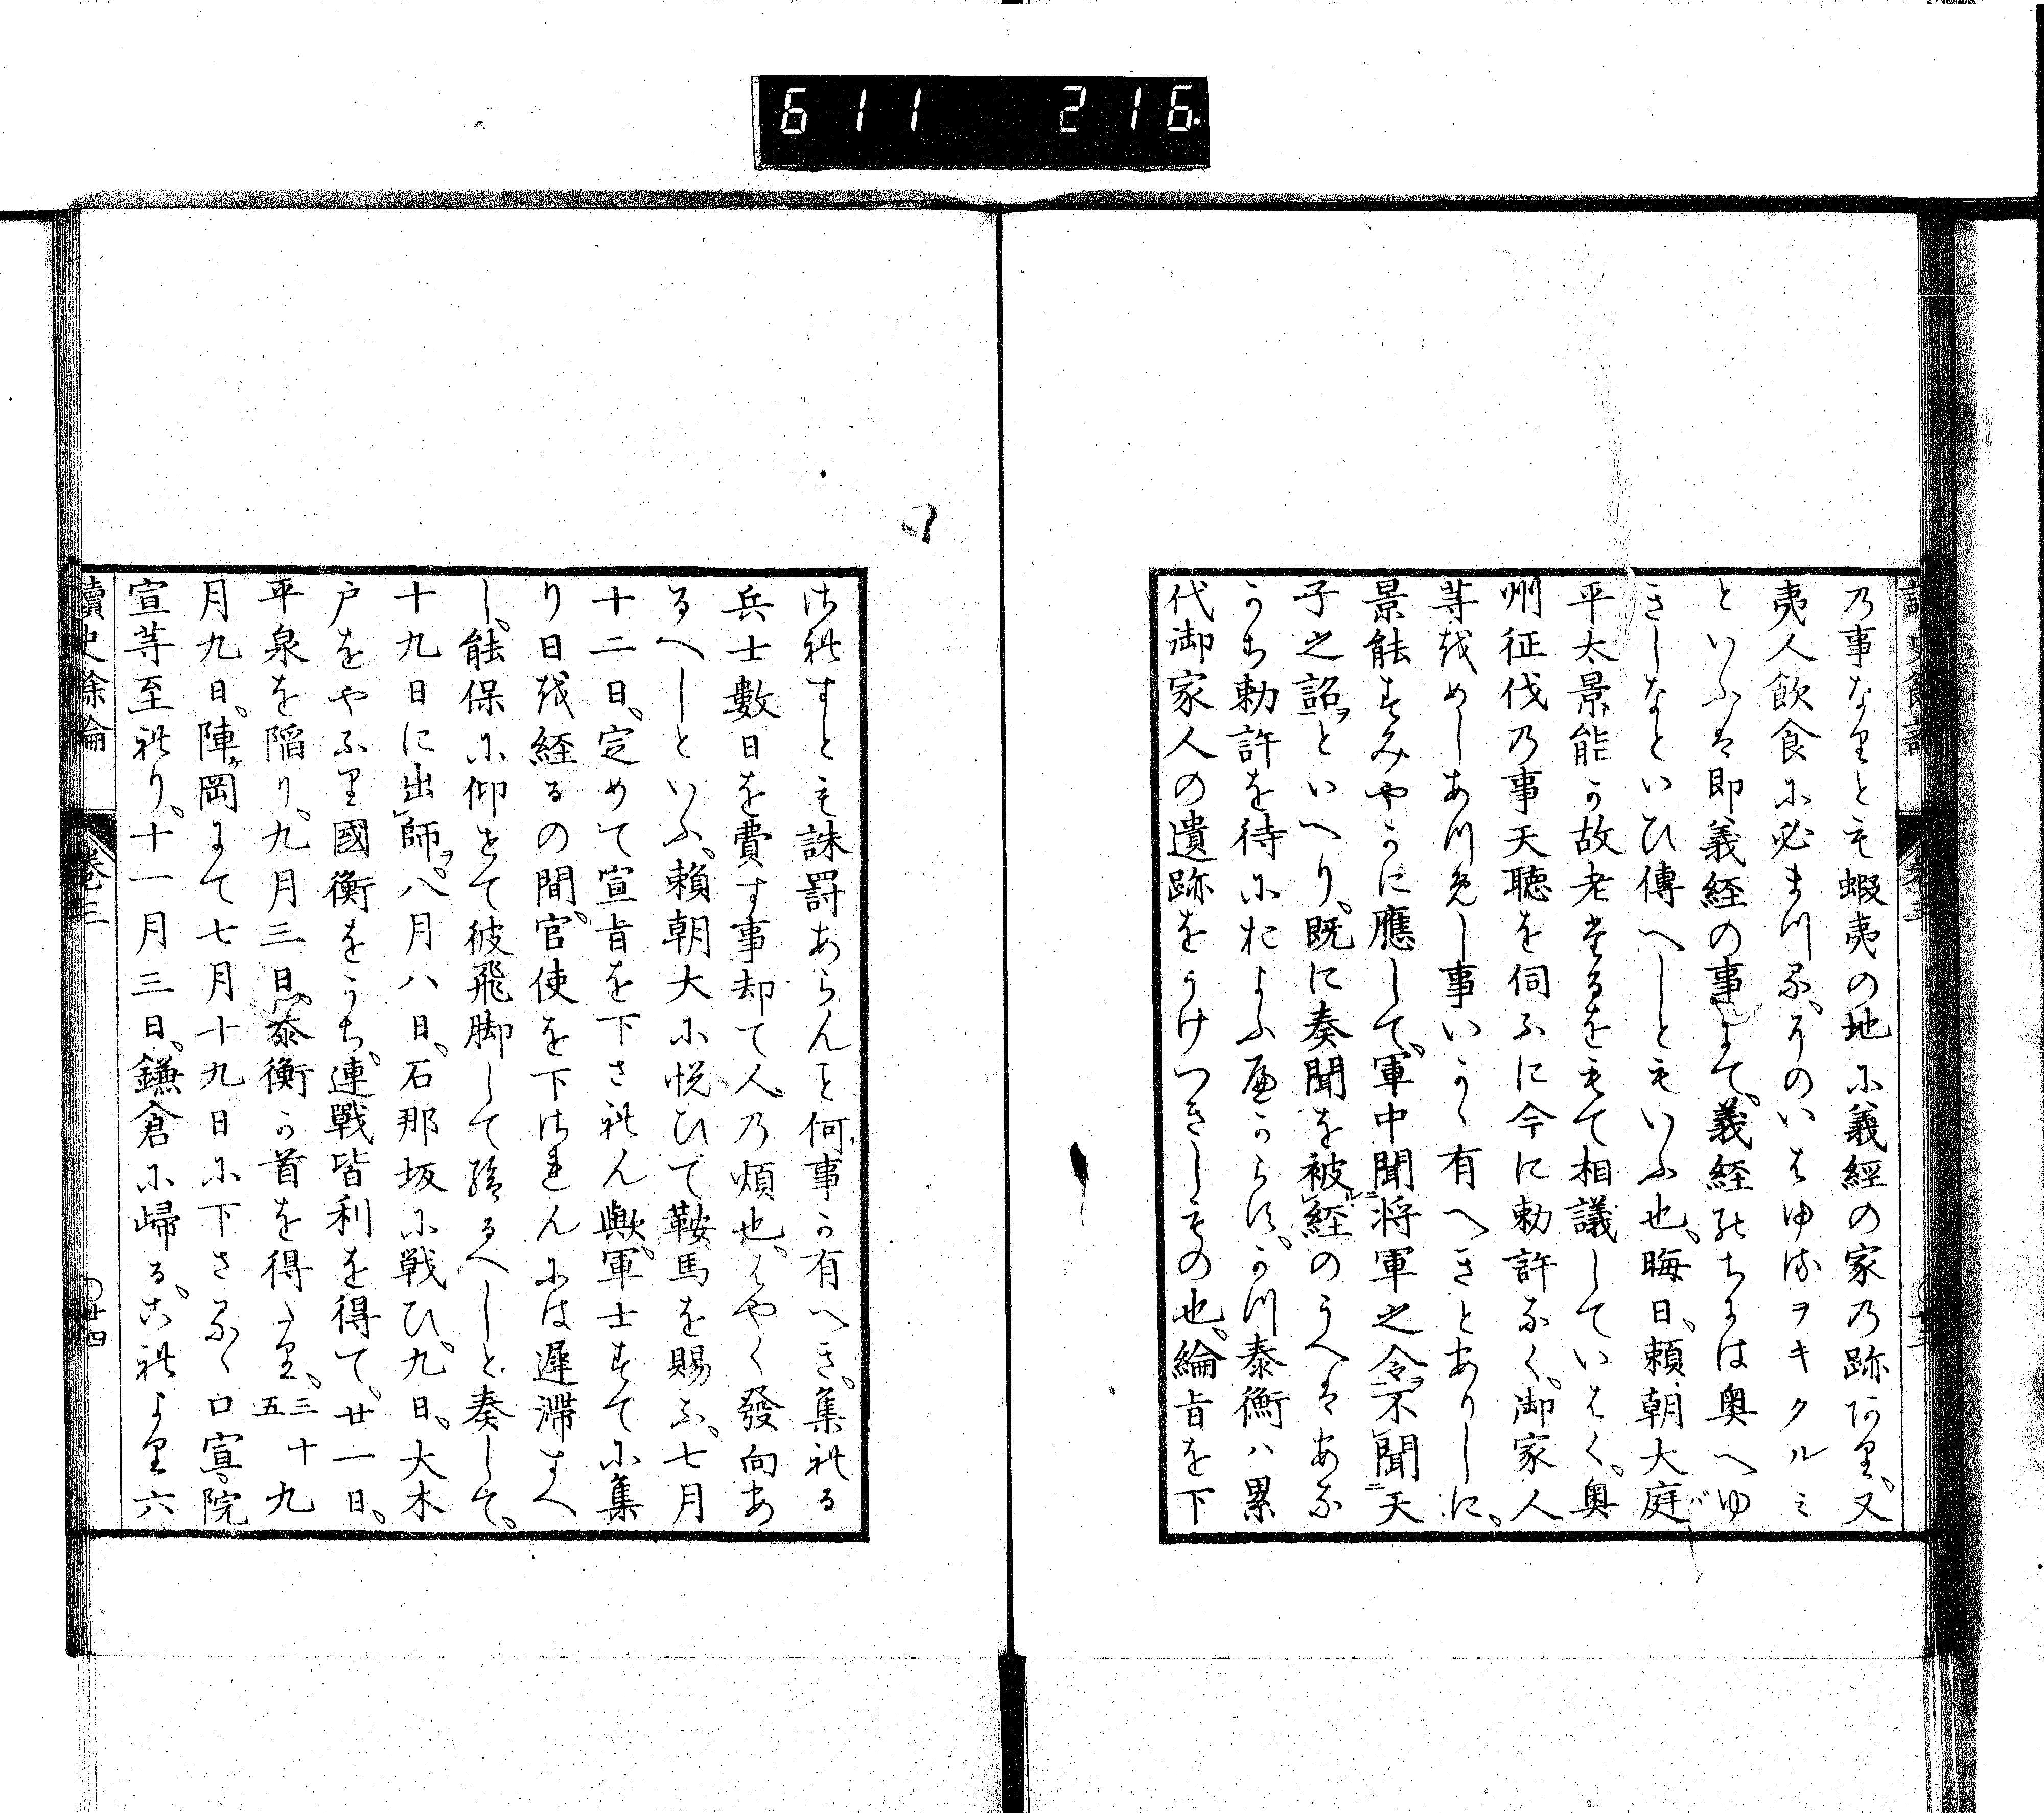 611 216.
乃事なりとも蝦夷の地に義經の家乃跡あり、又
夷人飲食に必まつる、そのいはゆるヲキクルミ
といふは即義経の事にて、義経のちには奥へゆ
きしなといひ傳へしともいふ也、晦日、頼朝大庭
平太景能か故老たるをもて相議していはく、奥
州征伐乃事天聴を伺ふに今に勅許なく、御家人
等を めしあつめし事いかゝ有へきとありしに、
景能すみやかに應して、軍中聞将軍之令ヲ不聞天
子之詔ヲといへり、既に奏聞を被経のうへはあな
かち勅許を待におよふへからす、かつ泰衡ハ累
代御家人の遺跡をうけつきしもの也、綸旨を下
讀史餘論 卷三 〇廿四
されすとも誅罰あらんこと何事か有へき、集れる
兵士數日を費す事却て人乃煩也、はやく發向あ
るへしといふ、頼朝大に悦ひて鞍馬を賜ふ、七月
十二日、定めて宣旨を下されん歟、軍士すてに集
り日を経るの間、官使を下されんには遅滞すへ
し、能保に仰をて彼飛脚して給るへしと奏して、
十九日に出師ヲ、八月八日、石那坂に戦ひ、九日、大木
戸をやふり國衡をうち、連戰皆利を得て、廿一日、
平泉を陥り、九月三日、泰衡か首を得たり、三十五 九
月九日、陣岡にて七月十九日に下さるゝ口宣、院
宣等至れり、十一月三日、鎌倉に歸る、これより六